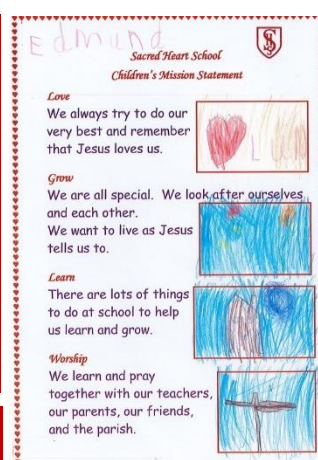 Edmund
Sacred Heart School
Children's Mission Statement
Love
We always try to do our
very best and remember
that Jesus loves us.
Grow
We are all special. We look after ourselves
and each other.
We want to live as Jesus
tells us to.
Learn
There are lots of things
to do at school to help
us learn and grow.
Worship
We learn and pray
together with our teachers,
our parents, our friends,
and the parish.